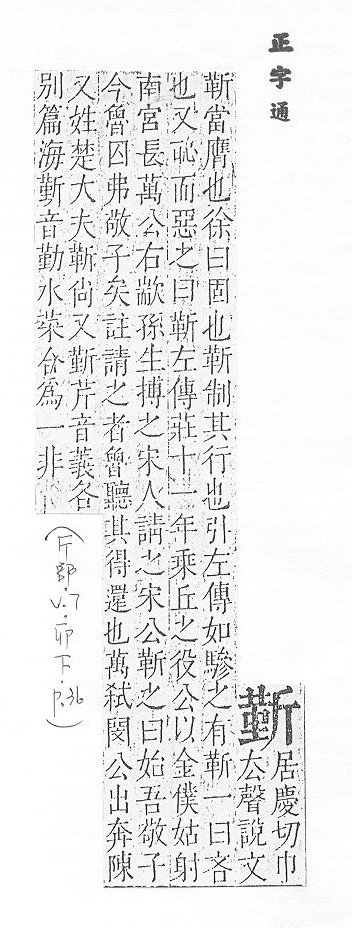 正字通
靳
居慶切巾
厺聲說文
靳當膺也徐曰固也靳制其行也引左傳如驂之有靳一曰吝
也又恥而惡之曰靳左傳莊十一年乘丘之役公以金僕姑射
南宮長萬公右歂孫生搏之宋人請之宋公靳之曰始吾敬子
今魯囚弗敬子矣註請之者魯聽其得還也萬弒閔公出奔陳
又姓楚大夫靳尙又靳芹音義各
別篇海靳音勤水菜合爲一非
(斤部.V.7.卯下.p.36)